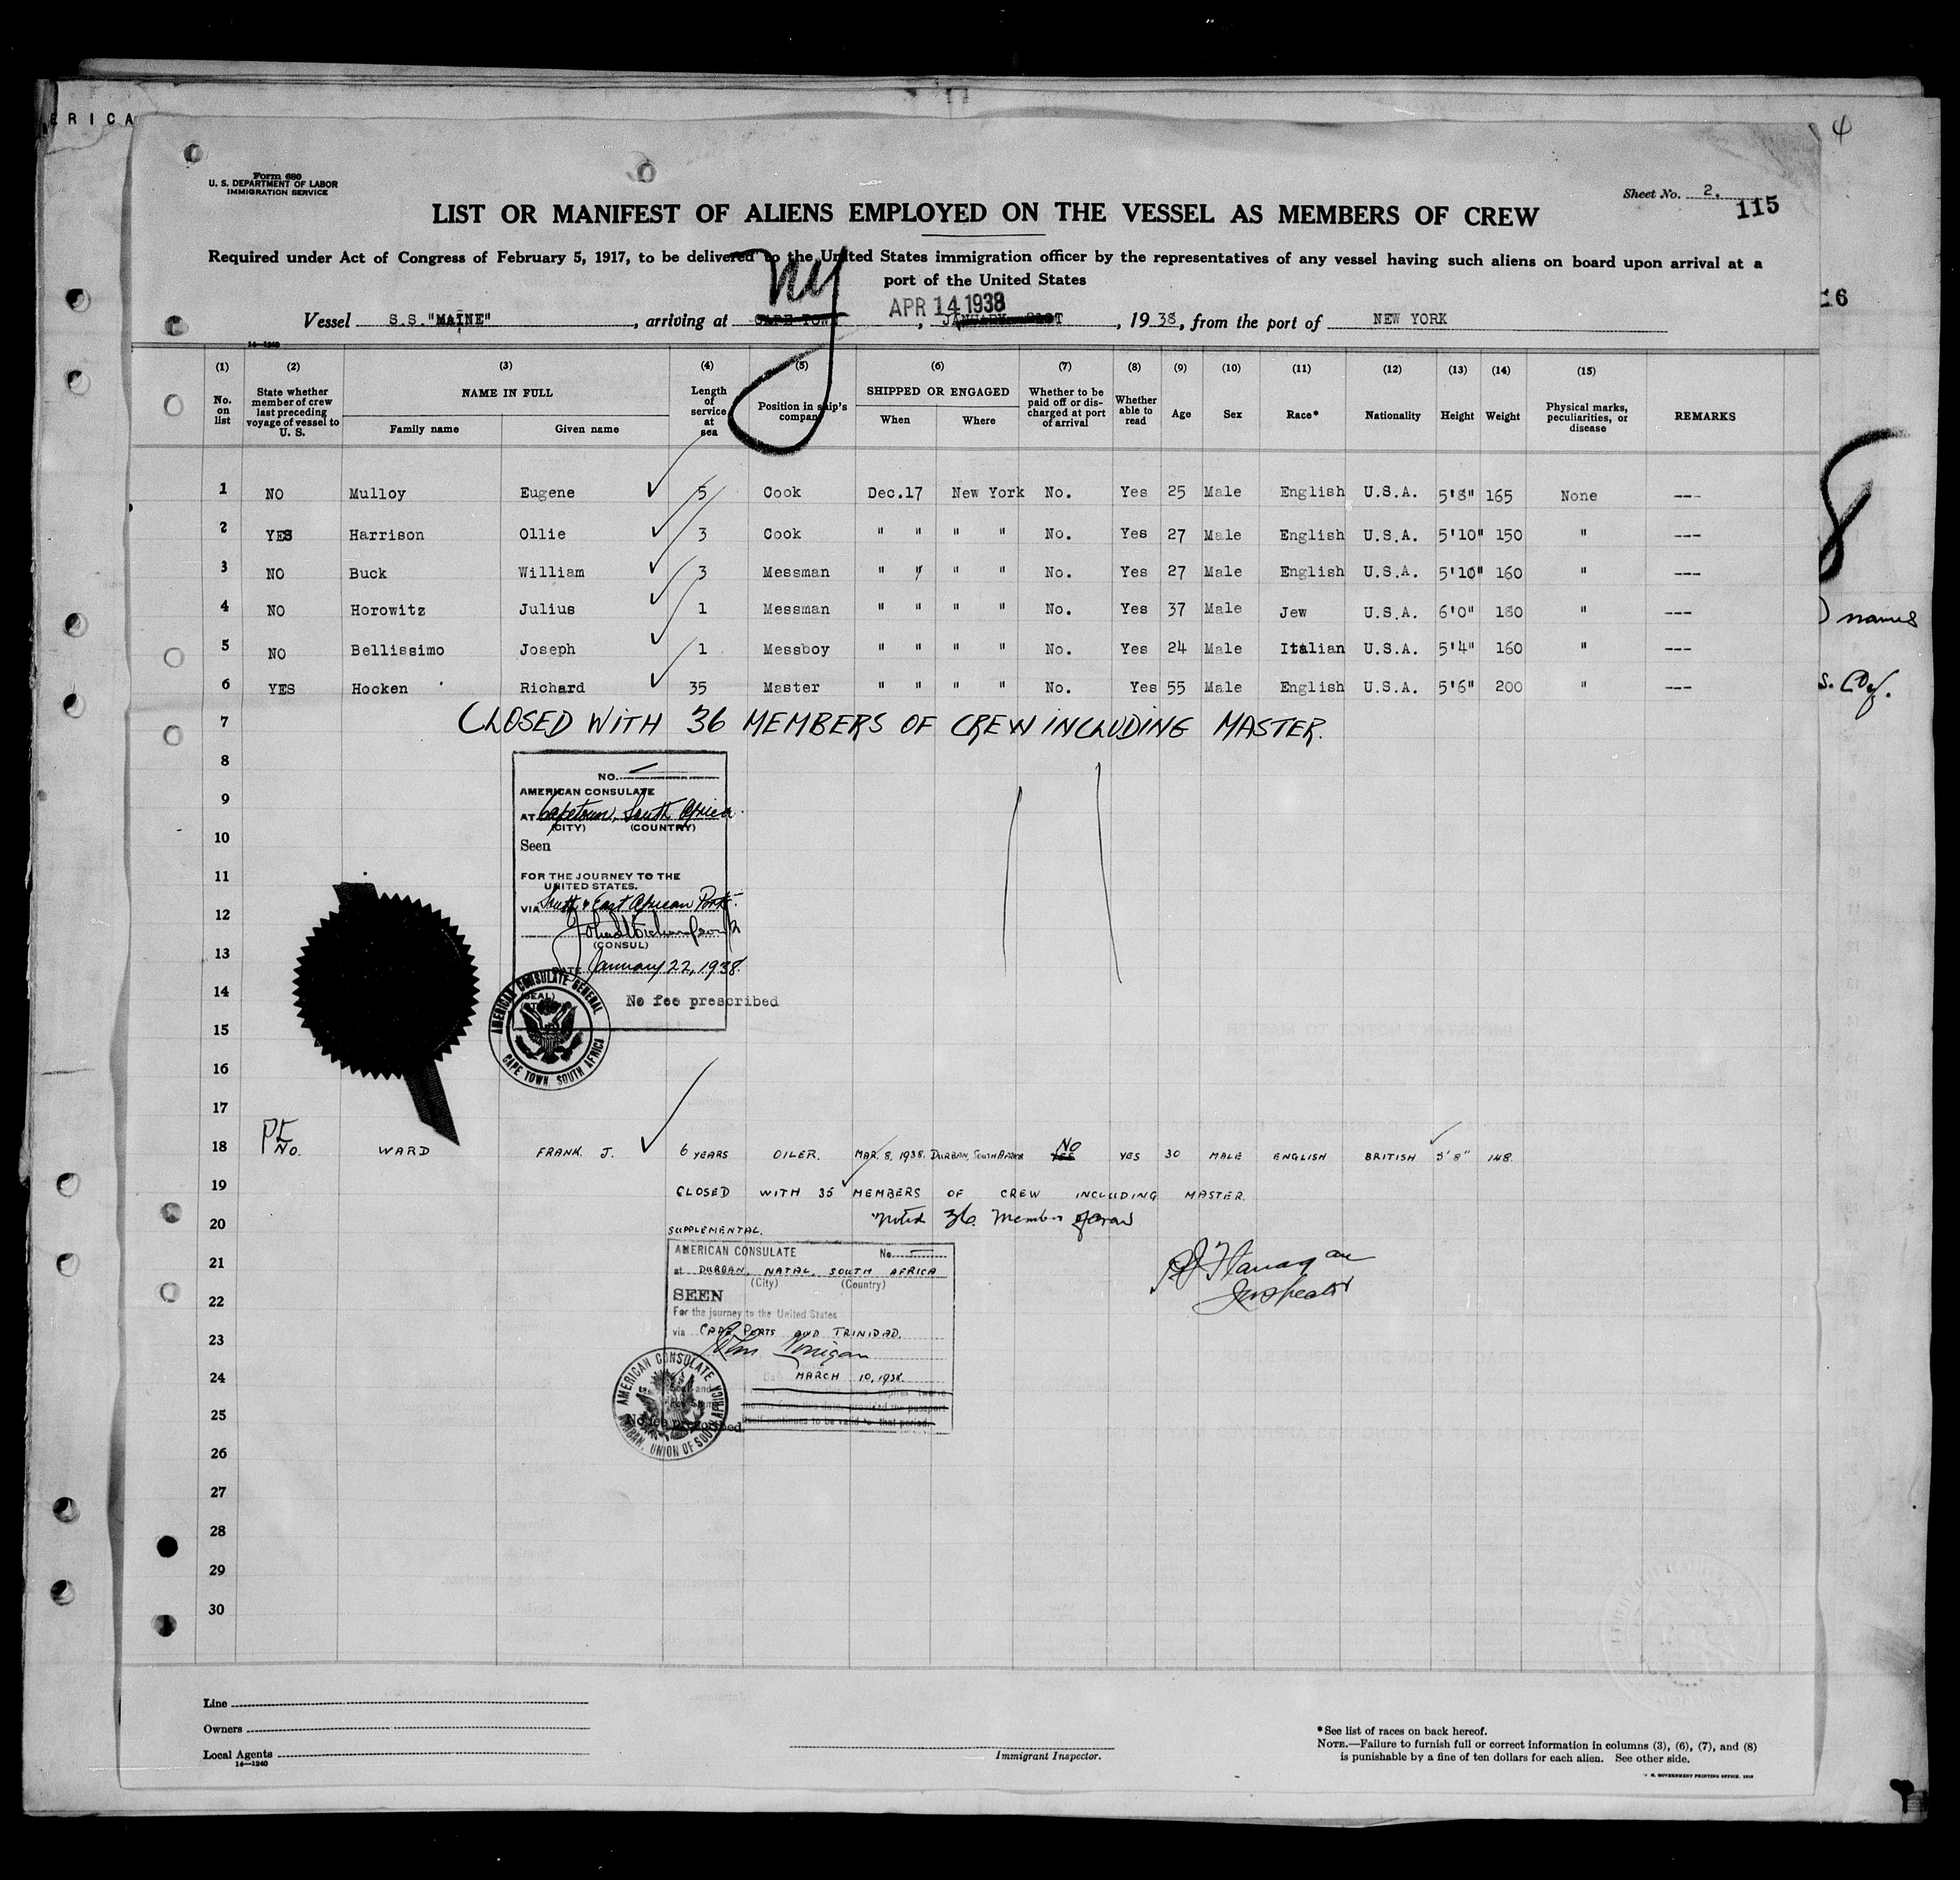 ERICA
4
Form 680
U. S. DEPARTMENT OF LABOR
IMMIGRATION SERVICE
Sheet No. 2.
115
LIST OR MANIFEST OF ALIENS EMPLOYED ON THE VESSEL AS MEMBERS OF CREW
Required under Act of Congress of February 5, 1917, to be delivered to the United States immigration officer by the representatives of any vessel having such aliens on board upon arrival at a
port of the United States
16
ny
APR 14 1938
Vessel S.S."MAINE", arriving at CAPE TOWN, JANUARY 21ST, 1938, from the port of NEW YORK
14—1240
(1) (2) (3) (4) (5) (6) (7) (8) (9) (10) (11) (12) (13) (14) (15)
No. on list State whether member of crew last preceding voyage of vessel to U. S. NAME IN FULL Family name Given name Length of service at sea Position in ship's company SHIPPED OR ENGAGED When Where Whether to be paid off or discharged at port of arrival Whether able to read Age Sex Race* Nationality Height Weight Physical marks, peculiarities, or disease REMARKS
1 NO Mulloy Eugene 5 Cook Dec.17 New York No. Yes 25 Male English U.S.A. 5'8" 165 None ---
2 YES Harrison Ollie 3 Cook " " " " No. Yes 27 Male English U.S.A. 5'10" 150 " ---
3 NO Buck William 3 Messman " " " " No. Yes 27 Male English U.S.A. 5'10" 160 " ---
4 NO Horowitz Julius 1 Messman " " " " No. Yes 37 Male Jew U.S.A. 6'0" 180 " ---
) names
5 NO Bellissimo Joseph 1 Messboy " " " " No. Yes 24 Male Italian U.S.A. 5'4" 160 " ---
6 YES Hocken Richard 35 Master " " " " No. Yes 55 Male English U.S.A. 5'6" 200 " ---
7 CLOSED WITH 36 MEMBERS OF CREW INCLUDING MASTER.
8
NO.
9
AMERICAN CONSULATE
AT Capetown, South Africa.
(CITY) (COUNTRY)
10
Seen
11
FOR THE JOURNEY TO THE
UNITED STATES.
VIA South & East African Ports.
12
(CONSUL)
13
DATE January 22, 1938.
14
(SEAL)
No fee prescribed
AMERICAN CONSULATE GENERAL
CAPE TOWN, SOUTH AFRICA
15
16
17
PE
18 No. WARD FRANK. J. 6 YEARS OILER. MAR. 8, 1938. DURBAN, SOUTH AFRICA YES NO YES 30 MALE ENGLISH BRITISH 5'8" 148.
19 CLOSED WITH 35 MEMBERS OF CREW INCLUDING MASTER.
20 Noted 36 Members of crew
SUPPLEMENTAL.
AMERICAN CONSULATE No.
21
at DURBAN, NATAL, SOUTH AFRICA
(City) (Country)
Flanagan
Inspector
22
SEEN
For the journey to the United States
23
via CAPE PORTS AND TRINIDAD.
24
MARCH 10, 1938.
25
No fee prescribed.
AMERICAN CONSULATE
DURBAN, UNION OF SOUTH AFRICA
itself continues to be valid for that period.
26
27
28
29
30
Line
Owners
Local Agents
14—1240
Immigrant Inspector.
*See list of races on back hereof.
NOTE.—Failure to furnish full or correct information in columns (3), (6), (7), and (8)
is punishable by a fine of ten dollars for each alien. See other side.
U. S. GOVERNMENT PRINTING OFFICE